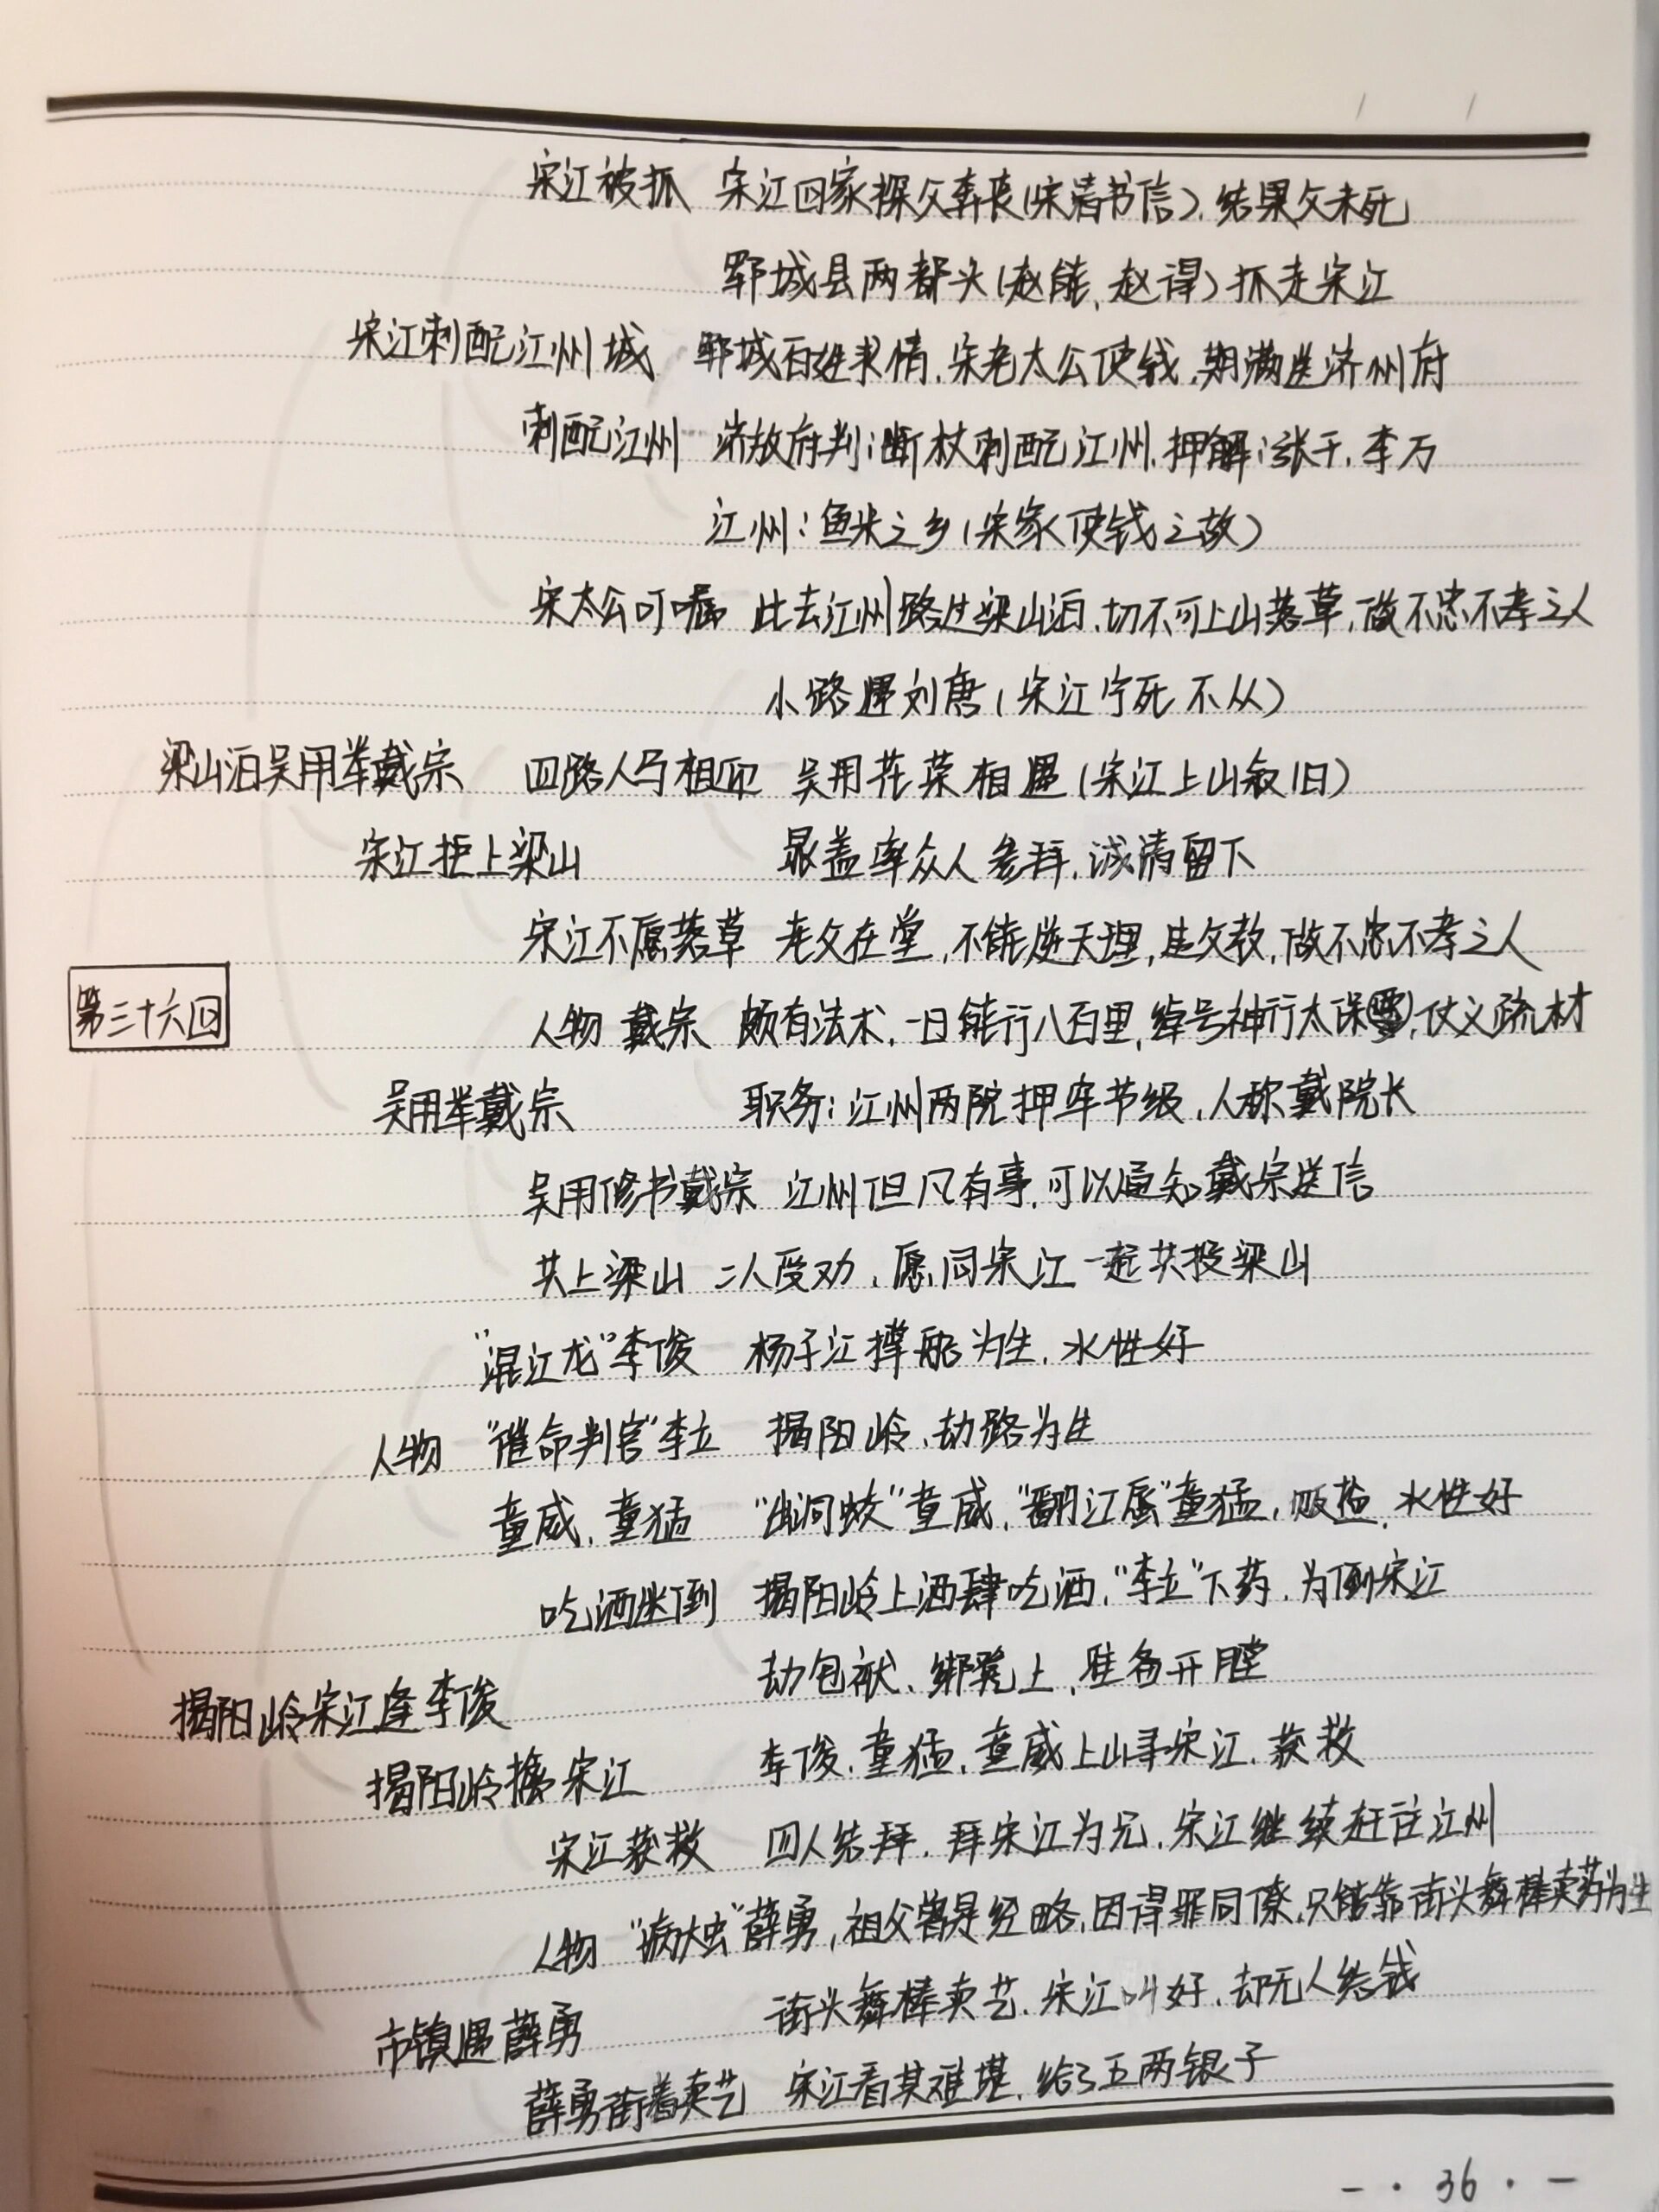 宋江被抓 宋江回家探父奔丧(宋清书信),结果父未死
郓城县两都头(赵能、赵得)抓走宋江
宋江刺配江州城 郓城百姓求情,宋老太公使钱,期满送济州府
刺配江州 济放府判:断杖刺配江州,押解:张千,李万
江州:鱼米之乡(宋家使钱之故)
宋太公叮嘱 此去江州路过梁山泊,切不可上山落草,做不忠不孝之人
小路遇刘唐(宋江宁死不从)
梁山泊吴用举戴宗 四路人马相迎 吴用花荣相遇(宋江上山叙旧)
宋江拒上梁山 晁盖率众人参拜,诚请留下
宋江不愿落草 老父在堂,不能逆天理,违父教,做不忠不孝之人
第三十六回
人物 戴宗 颇有法术,一日能行八百里,绰号神行太保,仗义疏材
吴用举戴宗 职务:江州两院押牢节级,人称戴院长
吴用修书戴宗 江州但凡有事,可以通知戴宗送信
共上梁山 二人受劝,愿同宋江一起共投梁山
“混江龙”李俊 杨子江撑船为生,水性好
人物 “催命判官”李立 揭阳岭,劫路为生
童威,童猛 “出洞蛟”童威,“翻江蜃”童猛,贩盐,水性好
吃酒迷倒 揭阳岭上酒肆吃酒,“李立”下药,为倒宋江
劫包袱,绑凳上,准备开膛
揭阳岭宋江逢李俊
李俊,童猛,童威上山寻宋江,获救
揭阳岭擒宋江
宋江获救 四人结拜,拜宋江为兄,宋江继续赶往江州
人物 “病大虫”薛勇,祖父曾是经略,因得罪同僚,只能靠街头舞棒卖药为生
街头舞棒卖艺,宋江叫好,却无人给钱
市镇遇薛勇
薛勇街着卖艺 宋江看其难堪,给了五两银子
- · 36 · -